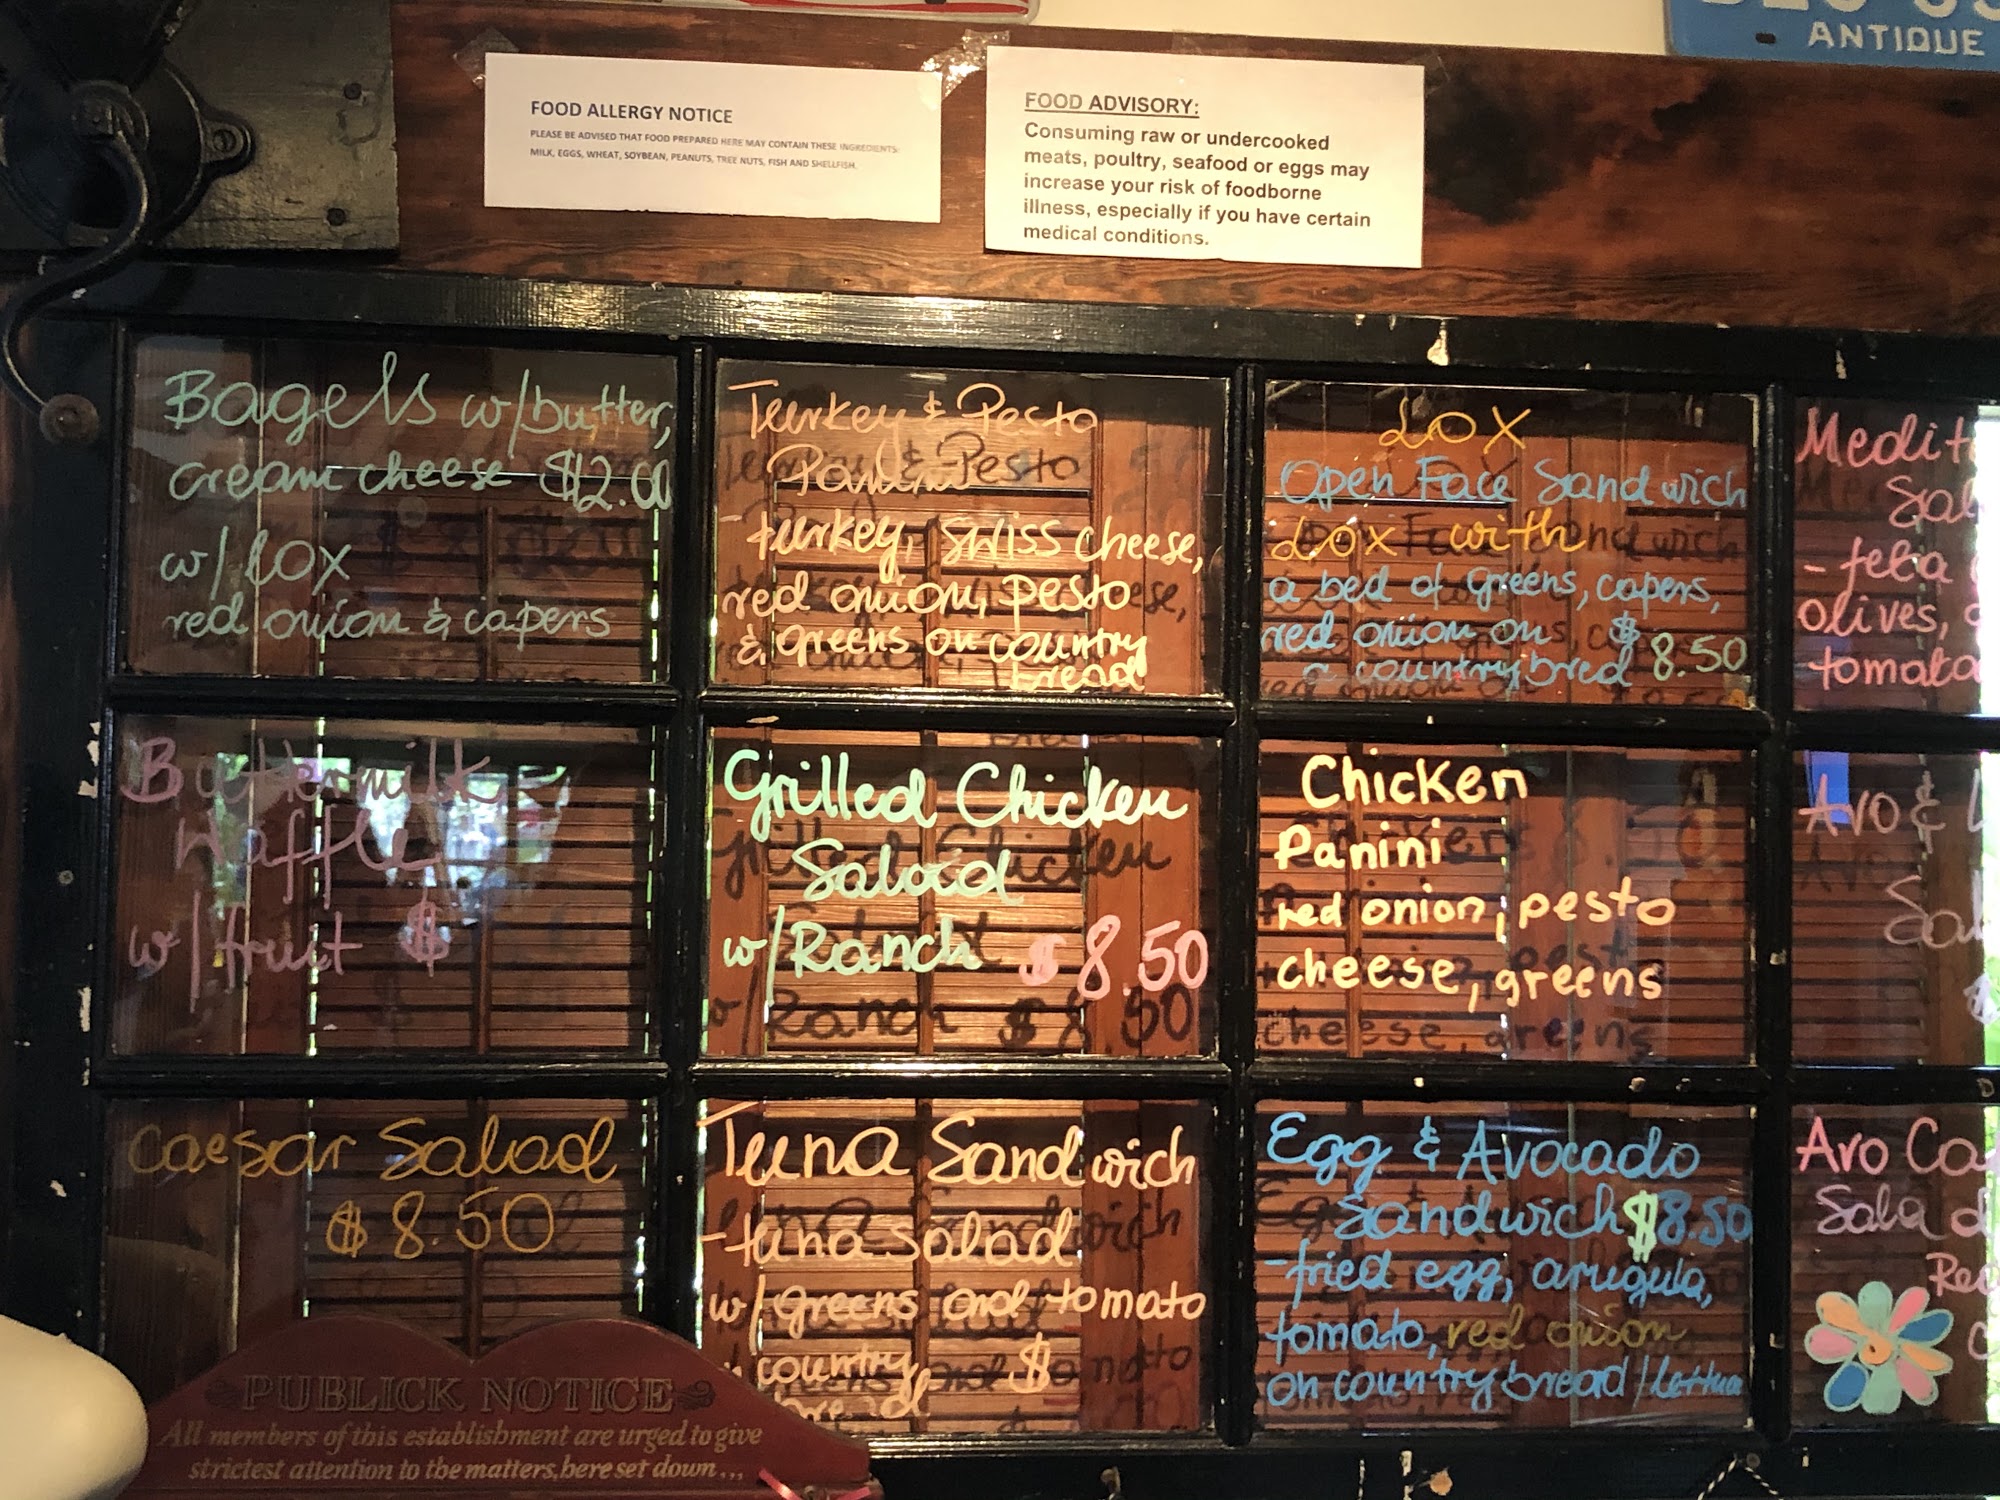 ANTIQUE
FOOD ALLERGY NOTICE
PLEASE BE ADVISED THAT FOOD PREPARED HERE MAY CONTAIN THESE INGREDIENTS:
MILK, EGGS, WHEAT, SOYBEAN, PEANUTS, TREE NUTS, FISH AND SHELLFISH.
FOOD ADVISORY:
Consuming raw or undercooked
meats, poultry, seafood or eggs may
increase your risk of foodborne
illness, especially if you have certain
medical conditions.
Bagels w/butter,
cream cheese $2.00
w/ lox
red onion & capers
Turkey & Pesto
Panini
-turkey, swiss cheese,
red onion, pesto
& greens on country
bread
LOX
Open Face Sandwich
Lox with
a bed of greens, capers,
red onion on $8.50
a country bred
Medit
Sal
- feta
olives,
tomato
Buttermilk
Waffle
w/ fruit $
Grilled Chicken
Salad
w/Ranch $8.50
Chicken
Panini
red onion, pesto
cheese, greens
Avo &
Sal
$
Caesar Salad
$8.50
Tuna Sandwich
-tuna salad
w/ greens and tomato
country $
bread
Egg & Avocado
Sandwich $8.50
-fried egg, arugula,
tomato, red onion
on country bread/lettuce
Avo Ca
Salad
Red
PUBLICK NOTICE
All members of this establishment are urged to give
strictest attention to the matters, here set down...